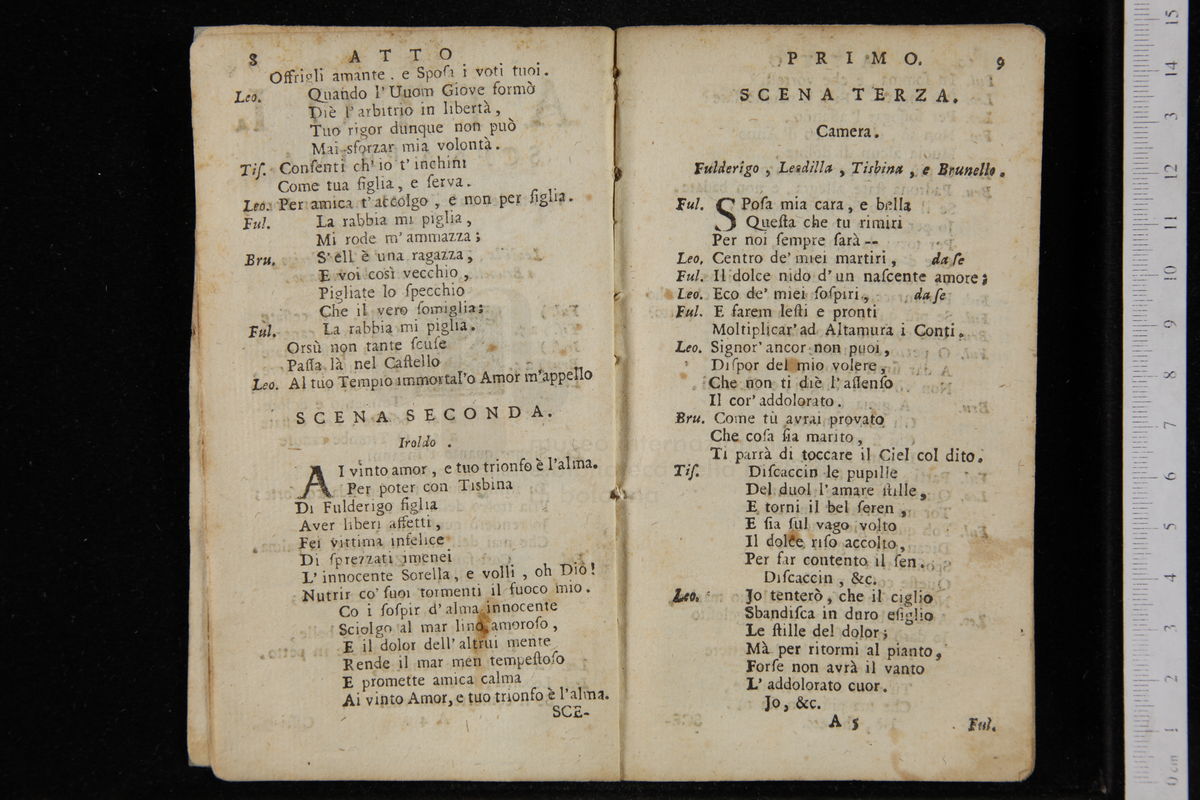 8 ATTO
Offrigli amante, e Sposa i voti tuoi.
Leo. Quando l'Uuom Giove formò
Diè l'arbitrio in libertà,
Tuo rigor dunque non può
Mai sforzar mia volontà.
Tiſ. Conſenti ch'io t'inchini
Come tua figlia, e ſerva.
Leo. Per amica t'accolgo, e non per figlia.
Ful. La rabbia mi piglia,
Mi rode m'ammazza;
Bru. S'ell'è una ragazza,
E voi così vecchio,
Pigliate lo ſpecchio
Che il vero ſomiglia;
Ful. La rabbia mi piglia.
Orsù non tante ſcuſe
Paſſa là nel Caſtello
Leo. Al tuo Tempio immortal'o Amor m'appello
SCENA SECONDA.
Iroldo.
AI vinto amor, e tuo trionfo è l'alma.
Per poter con Tisbina
Di Fulderigo figlia
Aver liberi affetti,
Fei vittima infelice
Di ſprezzati imenei
L'innocente Sorella, e volli, oh Dio!
Nutrir co' ſuoi tormenti il fuoco mio.
Co i ſoſpir d'alma innocente
Sciolgo al mar lino amoroſo,
E il dolor dell'altrui mente
Rende il mar men tempeſtoſo
E promette amica calma
Ai vinto Amor, e tuo trionfo è l'alma.
SCE-
PRIMO. 9
SCENA TERZA.
Camera.
Fulderigo, Leodilla, Tisbina, e Brunello.
Ful. SPoſa mia cara, e bella
Queſta che tu rimiri
Per noi ſempre ſarà --
Leo. Centro de' miei martiri, da ſe
Ful. Il dolce nido d'un naſcente amore;
Leo. Eco de' miei ſoſpiri, da ſe
Ful. E farem leſti e pronti
Moltiplicar' ad Altamura i Conti.
Leo. Signor' ancor non puoi,
Diſpor del mio volere,
Che non ti diè l'aſſenſo
Il cor' addolorato.
Bru. Come tù avrai provato
Che coſa ſia marito,
Ti parrà di toccare il Ciel col dito.
Tiſ. Diſcaccin le pupille
Del duol l'amare ſtille,
E torni il bel ſeren,
E ſia ſul vago volto
Il dolce riſo accolto,
Per far contento il ſen.
Diſcaccin, &c.
Leo. Jo tenterò, che il ciglio
Sbandiſca in duro eſiglio
Le ſtille del dolor;
Mà per ritormi al pianto,
Forſe non avrà il vanto
L'addolorato cuor.
Jo, &c.
A 5 Ful.
museo internazionale
biblioteca della musica
di bologna
0 cm 1 2 3 4 5 6 7 8 9 10 11 12 13 14 15